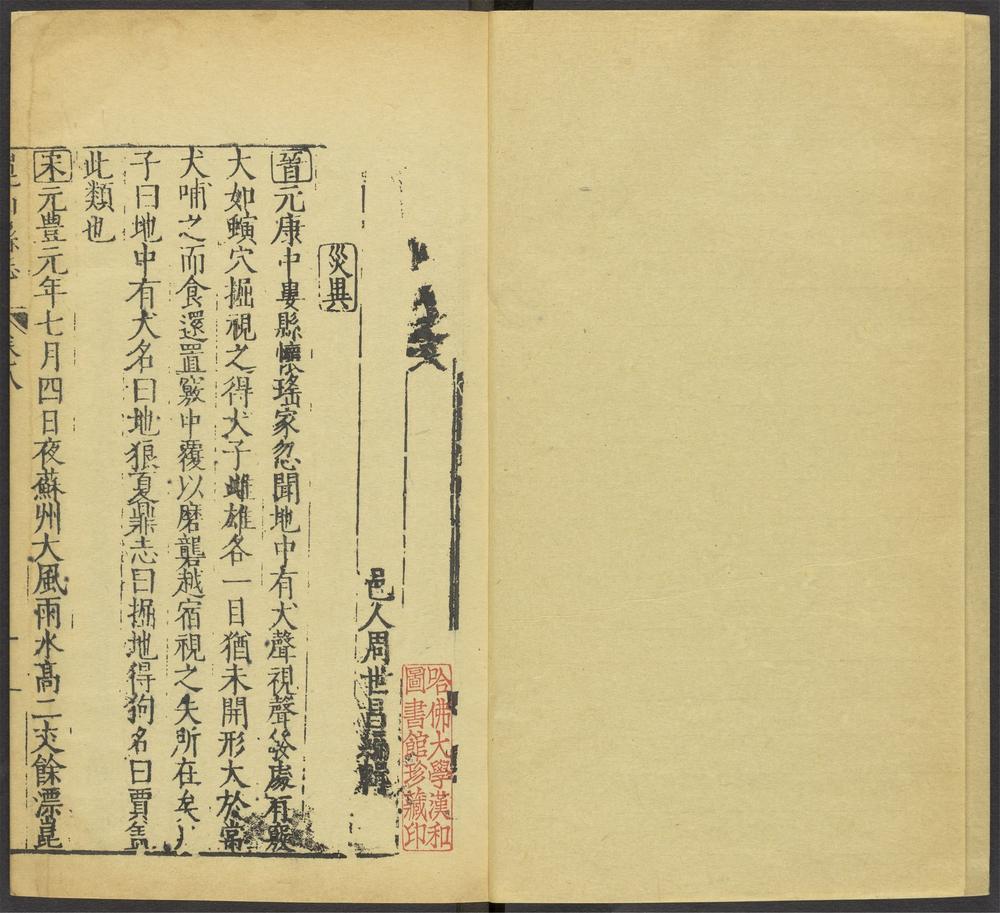 邑人周世昌編輯
災異
晉元康中婁縣懷瑤家忽聞地中有犬聲視聲發處有竅
大如螾穴掘視之得犬子雌雄各一目猶未開形大於常
犬哺之而食還置竅中覆以磨礱越宿視之失所在矣尸
子曰地中有犬名曰地狼夏鼎志曰掘地得狗名曰賈
此類也
宋元豐元年七月四日夜蘇州大風雨水高二丈餘漂崑
卷八
哈佛大學漢和
圖書館珍藏印